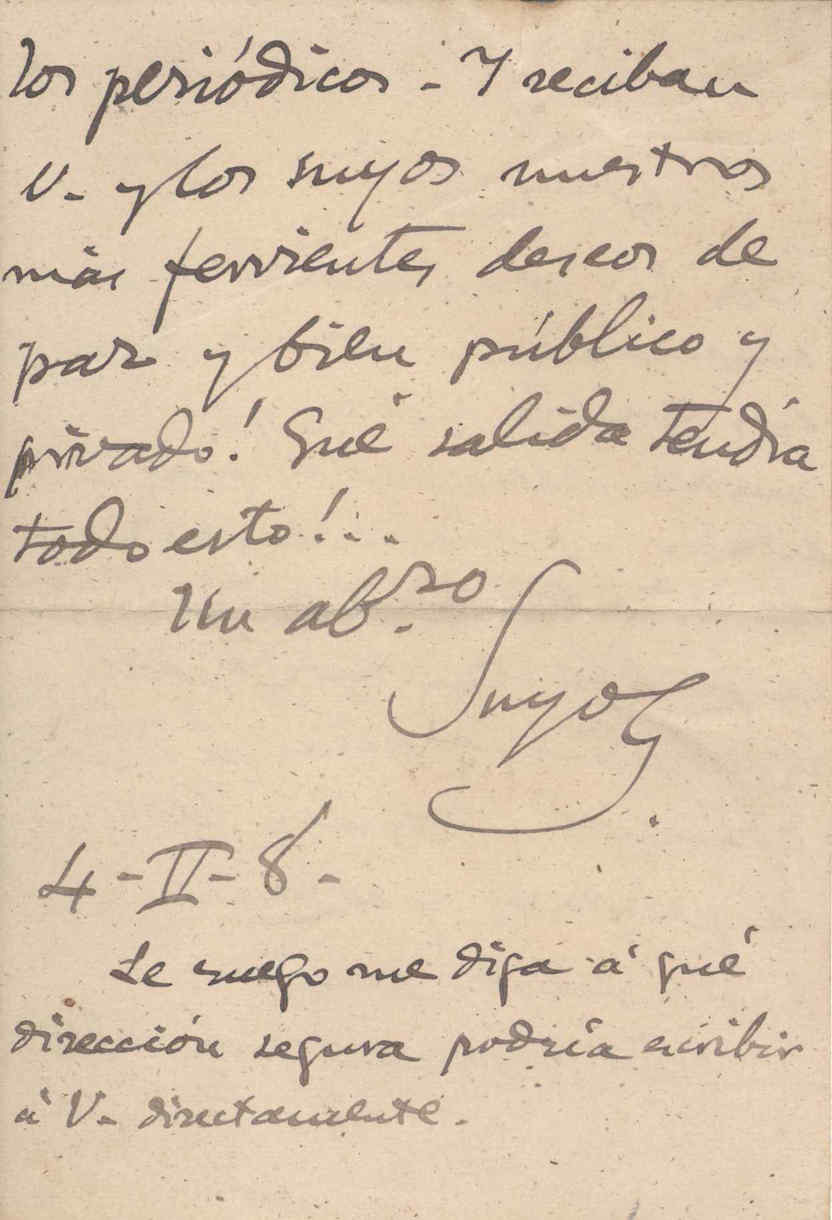 los periódicos - Y reciban
V. y los suyos nuestros
más fervientes deseos de
paz y bien público y
privado! Qué salida tendrá
todo esto!...
Un ab.zo
Suyo
4-II-8-
Le ruego me diga á qué
dirección segura podría escribir
á V. directamente.